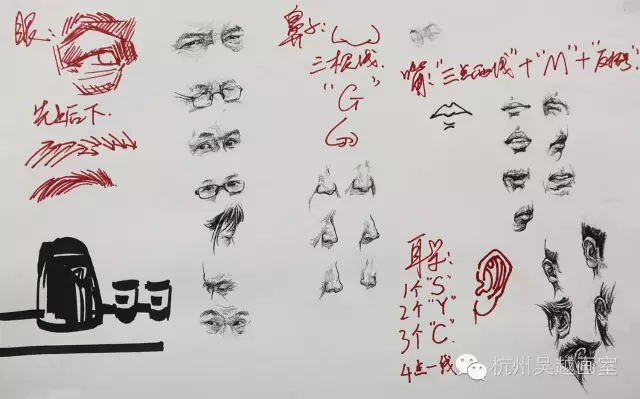 眼:
先上后下.
鼻子:
三根线.
"G"
嘴:"三点两线"+"M"+"反括号".
耳朵:
1个"S"
2个"Y"
3个"C".
4点一线
杭州吴越画室